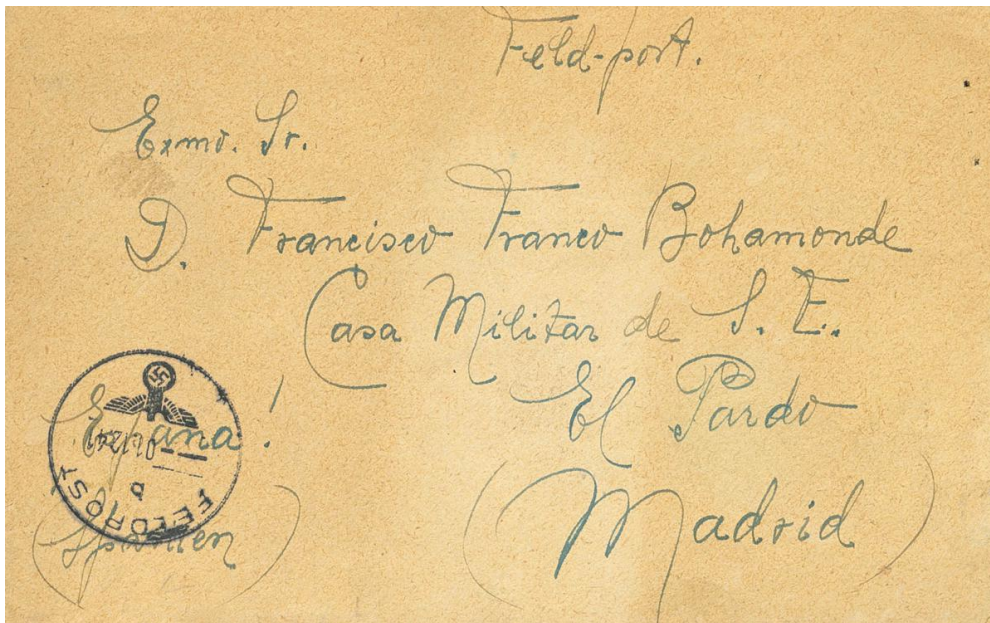 Feld-post.
Exmo. Sr.
D. Francisco Franco Bohamonde
Casa Militar de S. E.
El Pardo
España!
(Madrid)
(Spanien)
FELDPOST
a